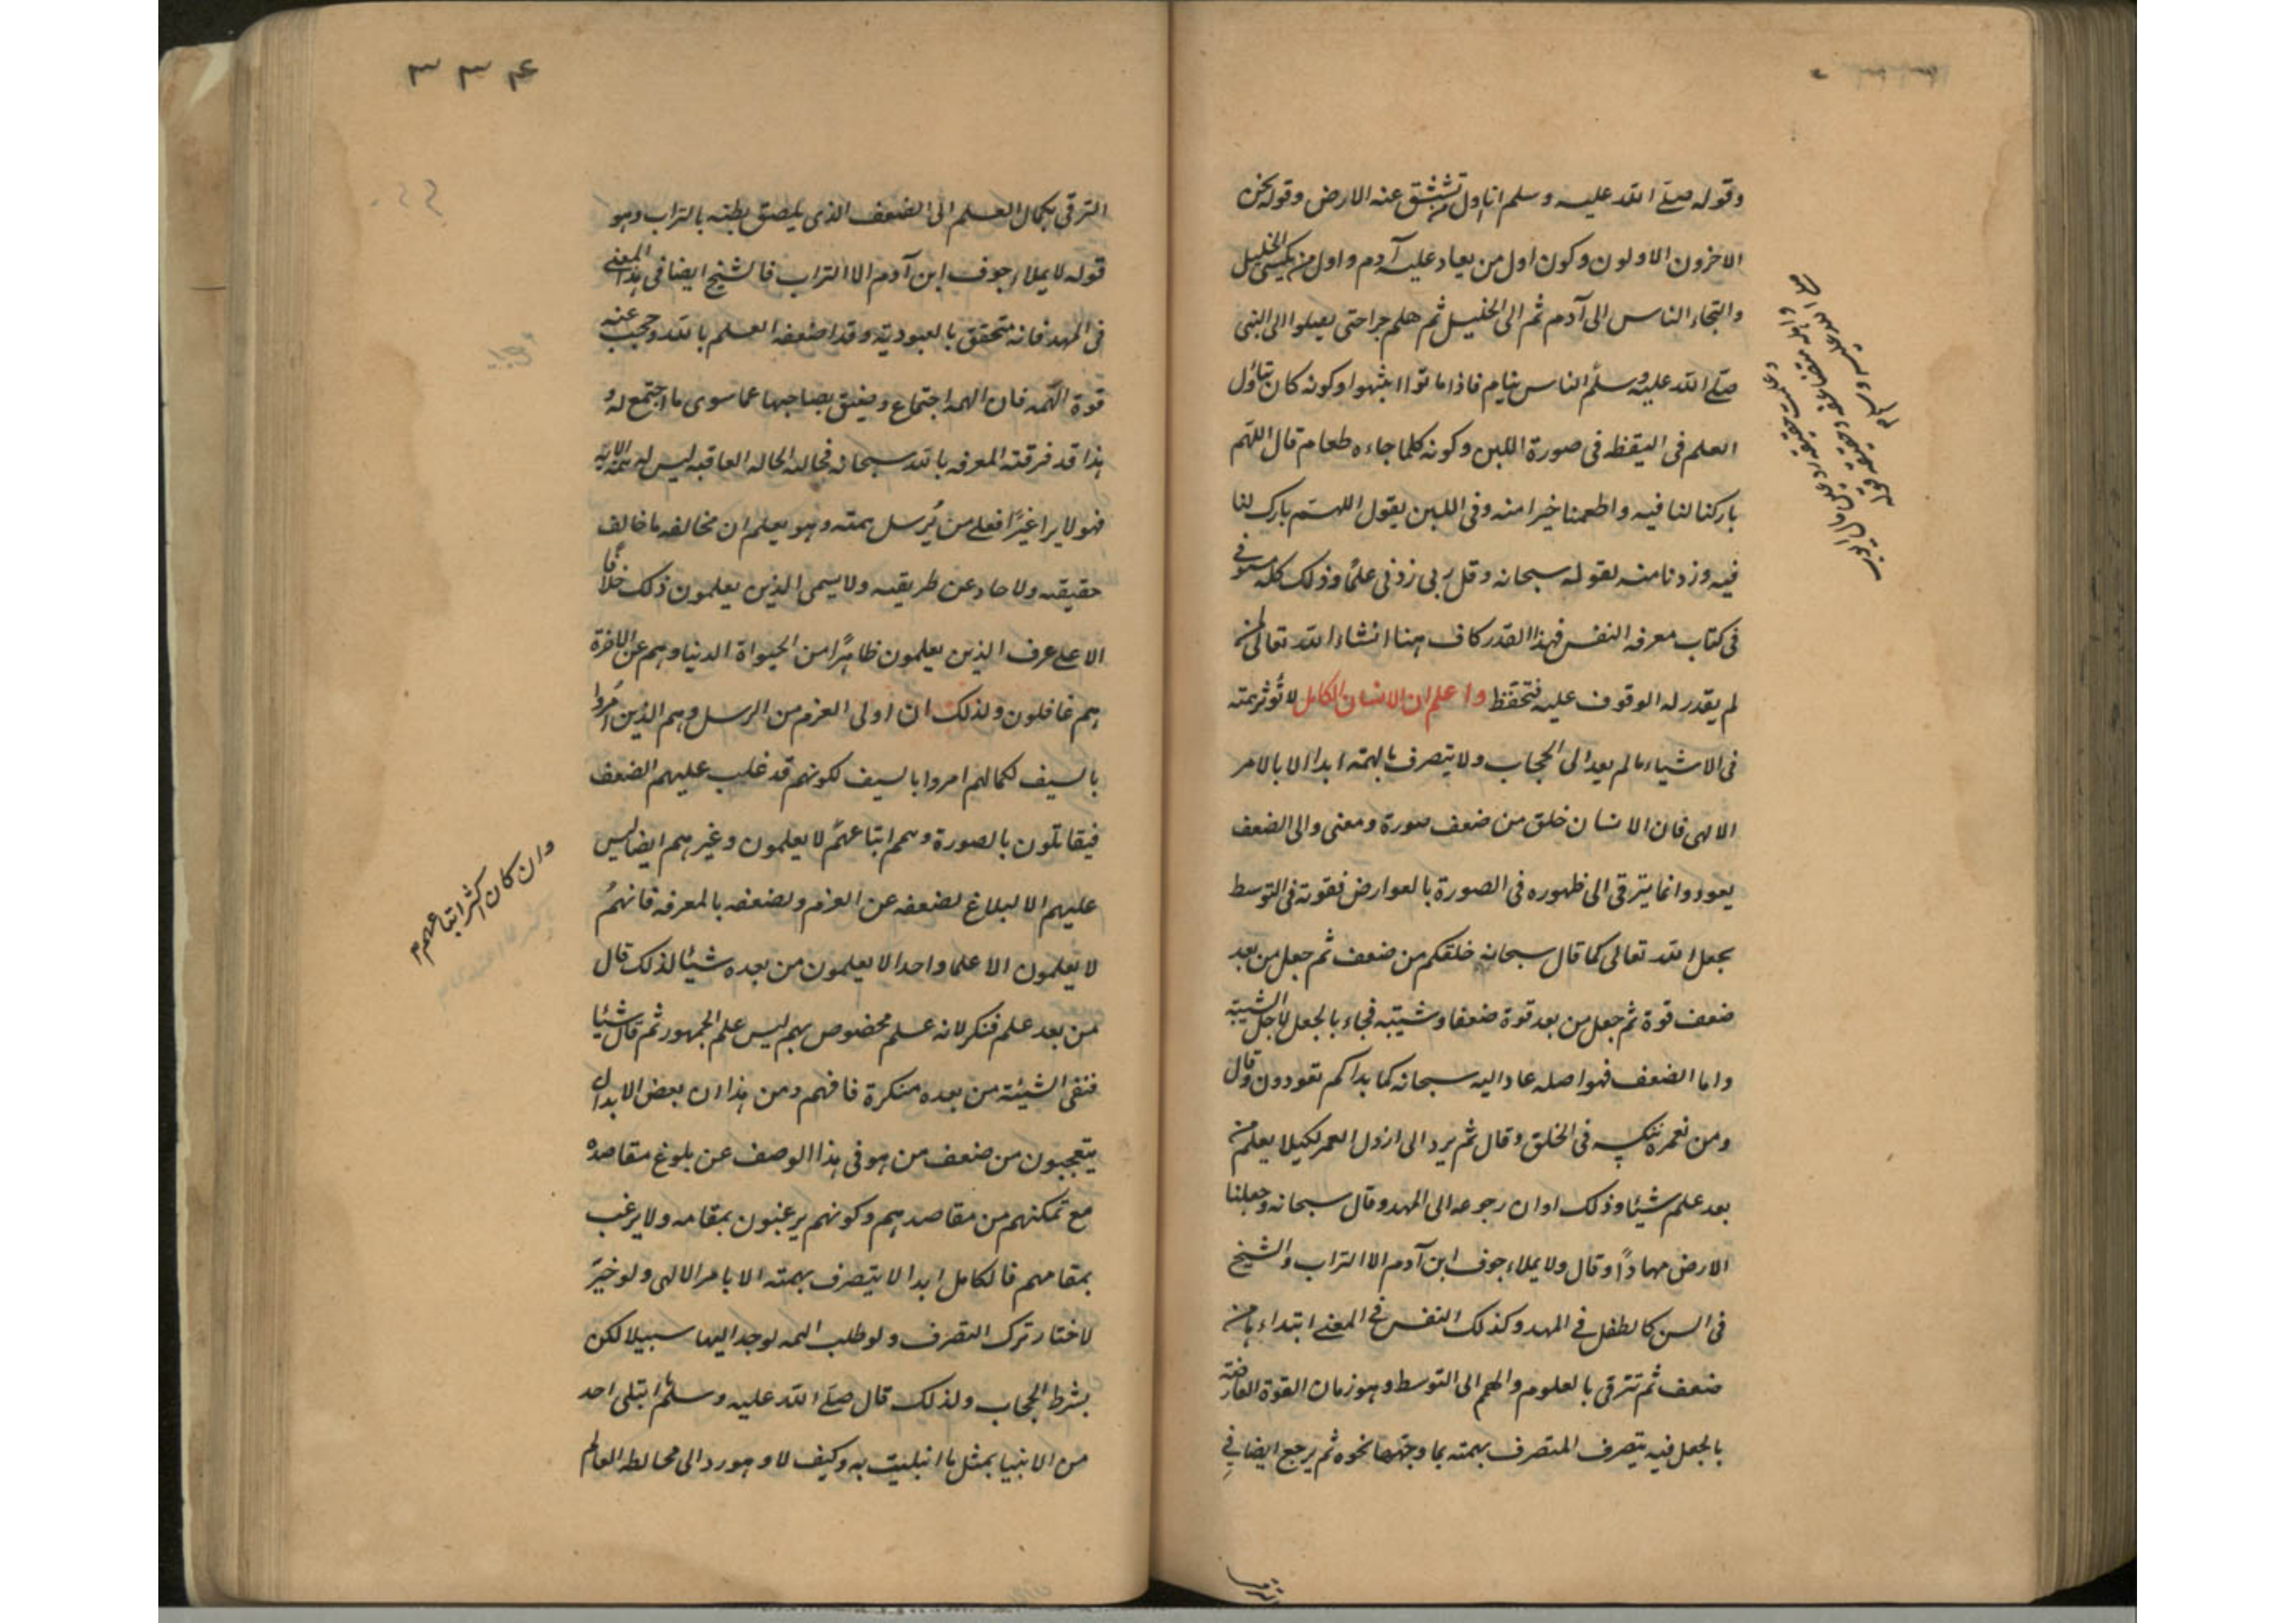 وقوله صلے الله عليه وسلم انا اول من تنشق عنه الارض وقوله نحن
الاخرون الاولون وكون اول من يعاد عليه آدم واول من يكسى الخليل
والتجاء الناس الى آدم ثم الى الخليل ثم هلم جرا حتى يصلوا الى النبى
صلے الله عليه وسلم الناس نيام فاذا ماتوا انتبهوا وكونه كان تناول
العلم فى اليقظه فى صورة اللبن وكونه كلما جاءه طعام قال اللهم
باركنا لنا فيه واطعمنا خيرا منه وفى اللبن يقول اللهم بارك لنا
فيه وزدنا منه لقوله سبحانه وقل ربى زدنى علمًا وذلك كله مستوفى
فى كتاب معرفه النفس فهذا القدر كاف هنا انشاء الله تعالى لمن
لم يقدر له الوقوف عليه فتحفظ واعلم ان الانسان الكامل لا تُوثر همته
فى الاشياء ما لم يعد الى الحجاب ولا يتصرف بالهمته ابدا الا بالامر
الالهى فان الانسان خلق من ضعف صورة ومعنى والى الضعف
يعود وانما يترقى الى ظهوره فى الصورة بالعوارض فقوته فى التوسط
بجعل الله تعالى كما قال سبحانه خلقكم من ضعف ثم جعل من بعد
ضعف قوة ثم جعل من بعد قوة ضعفا وشيبه فجاء بالجعل لاجل الشيبة
واما الضعف فهو اصله عاد اليه سبحانه كما بداكم تعودون وقال
ومن نعمره ننكسه فى الخلق وقال ثم يرد الى ارذل العمر لكيلا يعلم من
بعد علم شيئا وذلك اوان رجوعه الى المهد وقال سبحانه وجعلنا
الارض مهادًا وقال ولا يملاء جوف ابن آدم الا التراب والشيخ
فى السن كالطفل فى المهد وكذلك النفس فى المعنے ابتداءها من
ضعف ثم تترقى بالعلوم والهمم الى التوسط وهو زمان القوة العارضة
بالجعل فيه يتصرف المتصرف بهمته بما وجهها نحوه ثم يرجع ايضا فى
۳۳۴
الترقى بكمال العلم الى الضعف الذى يلصق بطنه بالتراب وهو
قوله لا يملاء جوف ابن آدم الا التراب فالشيخ ايضا فى هذا المعنے
فى المهد فانه متحقق بالعبودية وقد اضعفه العلم بالله وحجب عنه
قوة الهمه فان الهمه اجتماع وضيق بصاحبها عما سوى ما اجتمع له و
هذا قد فرقته المعرفه بالله سبحانه فحالته الحاله العاقبه ليس له همة الا به
فهو لا يرا غيرًا فعلے من يُرسل همته وهو يعلم ان مخالفه ما خالف
حقيقه ولا حاد عن طريقه ولا يسمى الذين يعلمون ذلك خلافًا
الا على عرف الذين يعلمون ظاهرًا من الحيواة الدنيا وهم عن الاخرة
هم غافلون ولذلك ان أولى العزم من الرسل وهم الذين اُمروا
بالسيف لكمالهم امروا بالسيف لكونهم قد غلب عليهم الضعف
فيقاتلون بالصورة وهمم اتباعهم لا يعلمون وغيرهم ايضا ليس
عليهم الا البلاغ لضعفه عن العزم ولضعفه بالمعرفه فانهم
لا يعلمون الا علما واحدا لا يعلمون من بعده شيئا لذلك قال
من بعد علم فنكر لانه علم مخصوص بهم ليس علم الجمهور ثم قال شيئا
فنفى الشيئة من بعده منكرة فافهم ومن هذا ان بعض الابدال
يتعجبون من ضعف من هو فى هذا الوصف عن بلوغ مقاصده
مع تمكنهم من مقاصدهم وكونهم يرغبون بمقامه ولا يرغب
بمقامهم فالكامل ابدا لا يتصرف بهمته الا بامر الالهى ولو خيّر
لاختار ترك التصرف ولو طلب الهمه لوجد اليها سبيلا لكن
بشرط الحجاب ولذلك قال صلے الله عليه وسلم ما ابتلى احد
من الانبيا بمثل ما ابتليت به وكيف لا وهو رد الى مخالطه العالم
وان كان اكثر اتباعهم